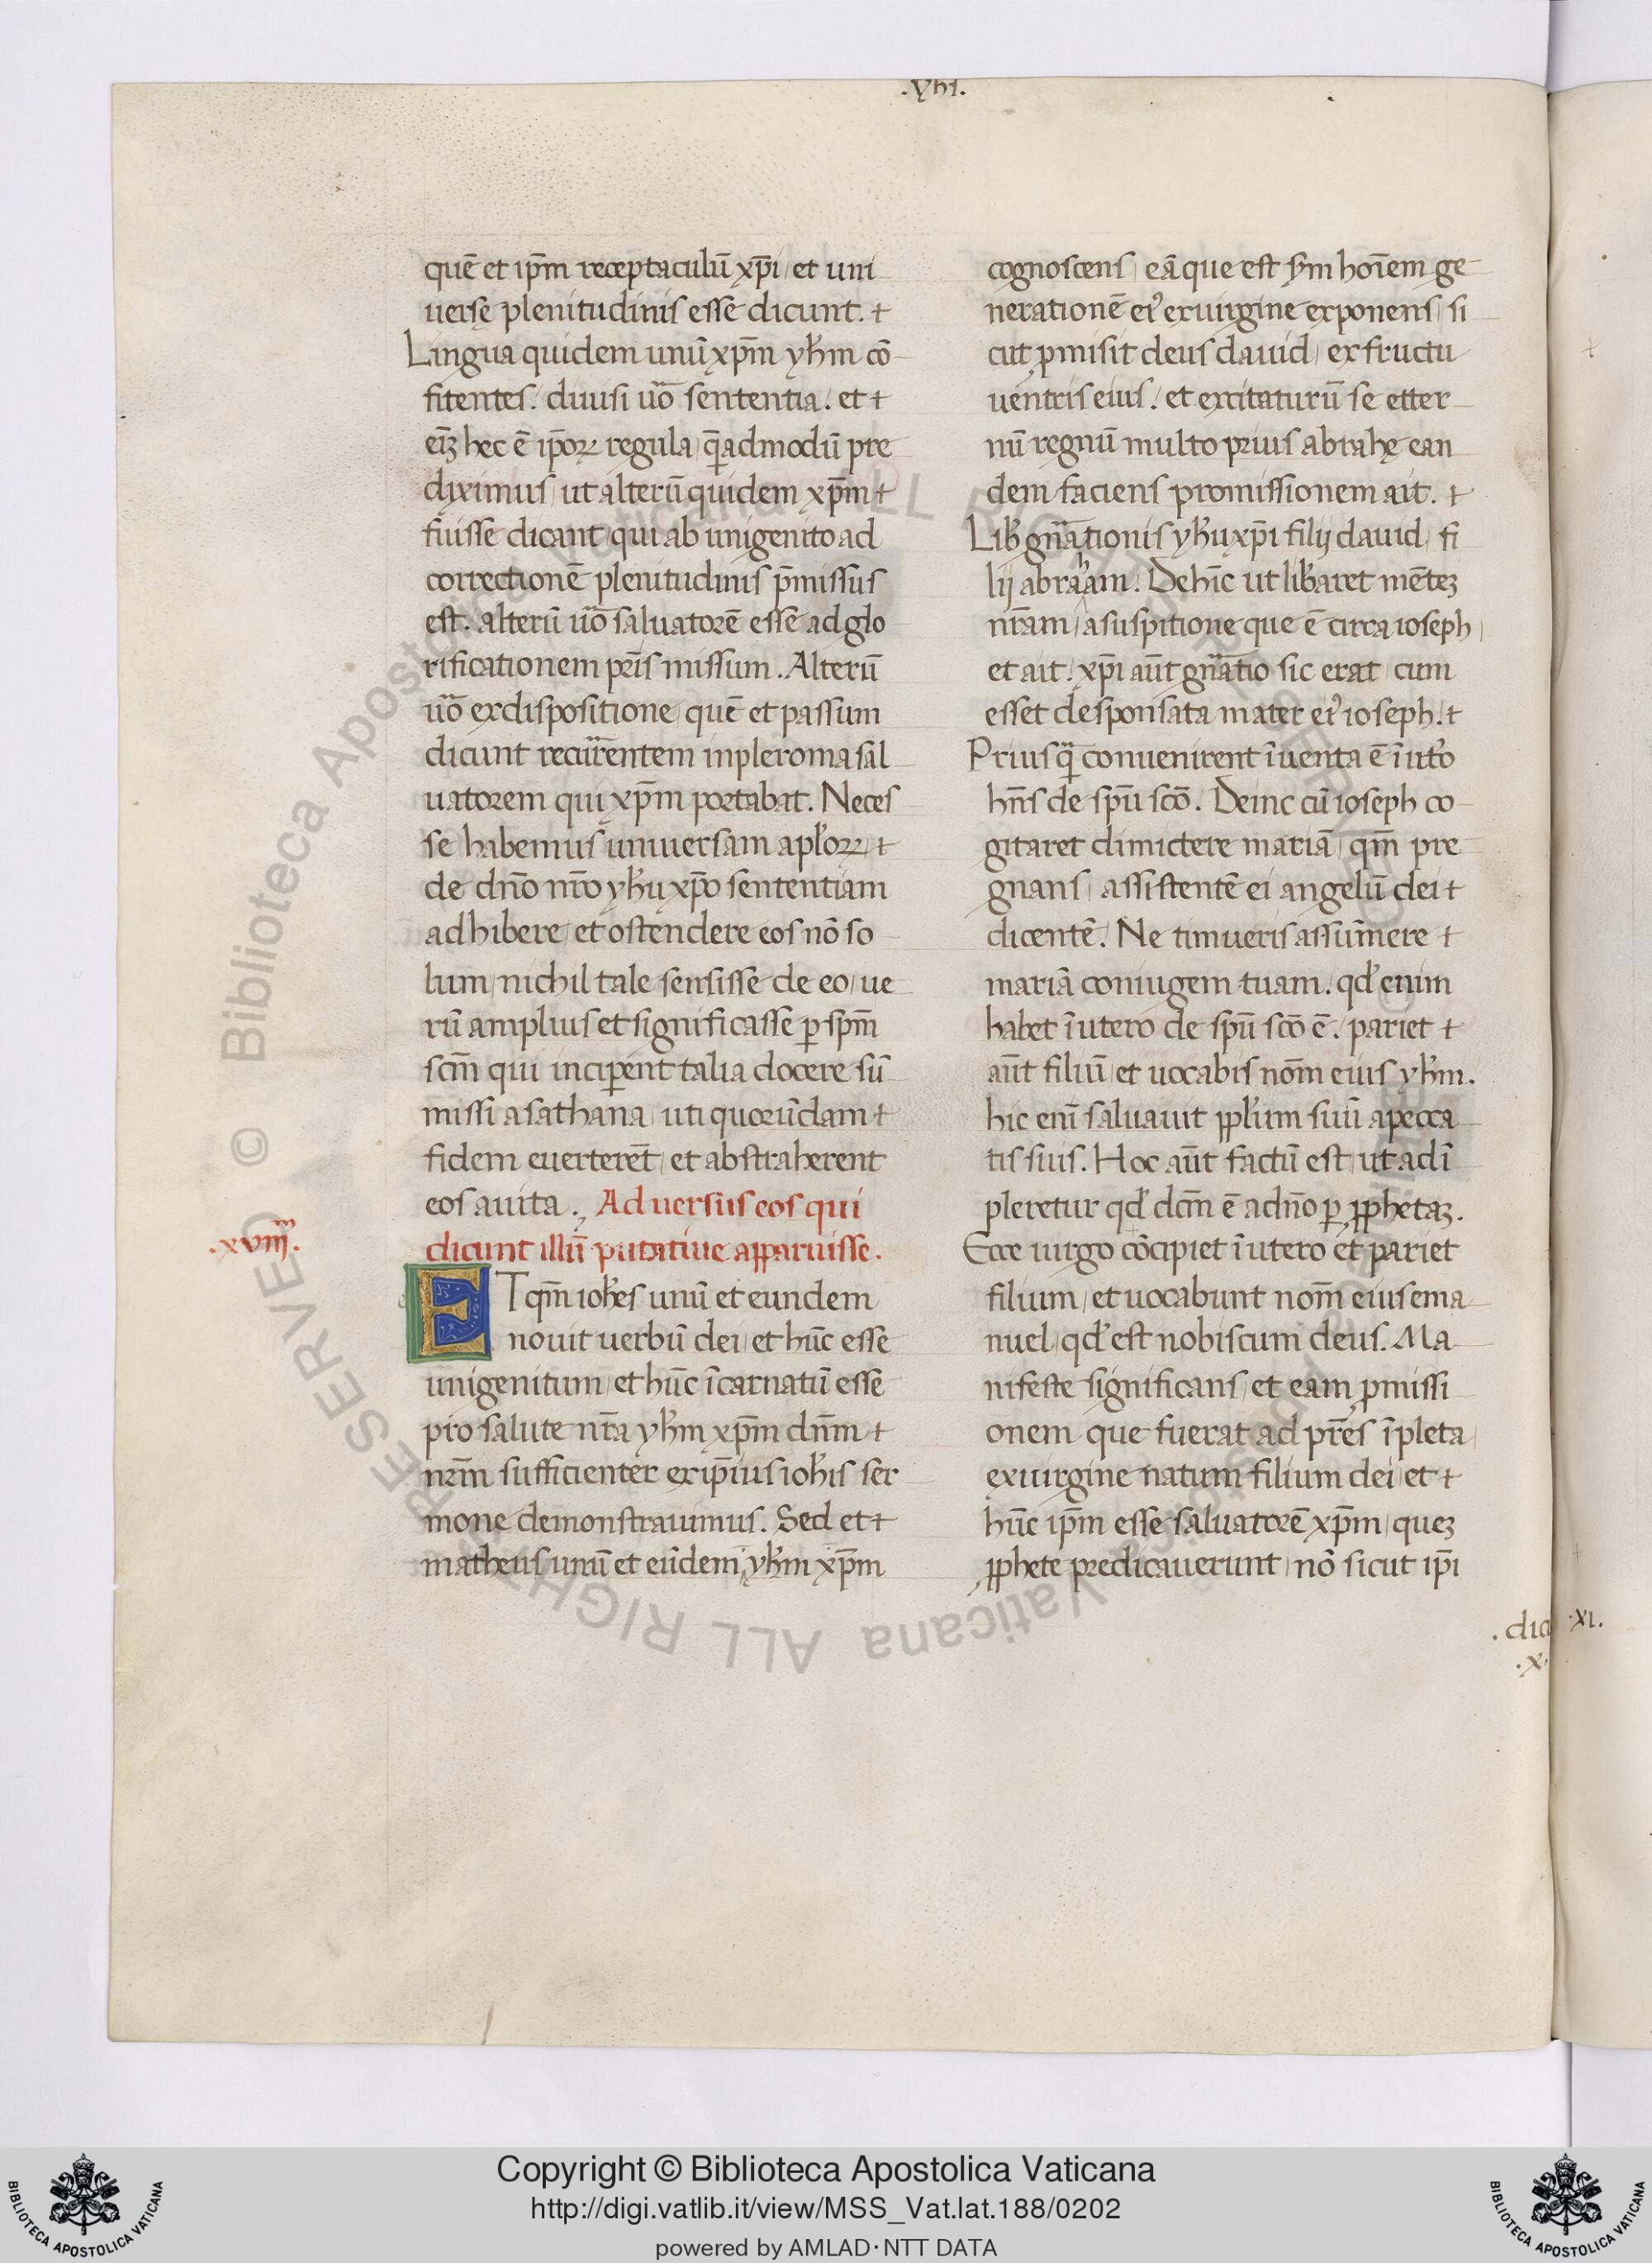 .xhi.
quē et ip̄m receptaculū xp̄i / et uni
uersę plenitudinis esse dicunt. +
Lingua quidem unū xp̄m yħm cō
fitentes. diuisi ūo sententia. et +
eīʒ hec ē ip̄oꝝ regula / q̄admodū pre
diximus / ut alterū quidem xp̄m +
fuisse dicant / qui ab unigenito ad
correctionē plenitudinis p̄missus
est. alterū ūo saluatorē esse ad glo
rificationem pr̄is missum. Alterū
ūo ex dispositione / quē et passum
dicunt recurrentem in pleroma sal
uatorem qui xp̄m portabat. Neces
se habemus uniuersam apl'oꝝ +
de dn̄o nr̄o yħu xp̄o sententiam
adhibere / et ostendere eos nō so
lum / nichil tale sensisse de eo / ue
rū amplius et significasse ꝑ spm̄
scm̄ qui inciꝑent talia docere sū
missi a sathana / uti quorūdam +
fidem euerterēt / et abstraherent
eos a uita. Aduersus eos qui
dicunt illū putatiue apparuisse.
.xviij.
ET qm̄ ioħes unū et eundem
nouit uerbū dei / et hūc esse
unigenitum / et hūc īcarnatū esse
pro salute nr̄a yħm xp̄m dn̄m +
nr̄m sufficienter ex ip̄ius ioħis ser
mone demonstrauimus. Sed et +
matheus unū et eūdem yħm xp̄m
cognoscens / eā que est sᵐ hoīem ge
nerationē ei' ex uirgine exponens / si
cut ꝓmisit deus dauid / ex fructu
uentris eius. et excitaturū se etter
nū regnū multo prius abrahę ean
dem faciens promissionem ait. +
Lib' gn̄ationis yħu xp̄i filij dauid / fi
lij abraham. Dehīc ut lib'aret mētēʒ
nr̄am / a suspitione que ē circa ioseph /
et ait. xp̄i aūt gn̄atio sic erat / cum
esset desponsata mater ei' ioseph. +
Priusq̄ conuenirent īuenta ē ī ut'o
hn̄s de spū scō. Deinc cū ioseph co
gitaret dimictere mariā / qm̄ pre
gnans / assistentē ei angelū dei +
dicentē. Ne timueris assūmere +
mariā coniugem tuam. qd' enim
habet ī utero de spū scō ē. pariet +
aūt filiū / et uocabis nom̄ eius yħm.
hic enī saluauit ppl'um suū a pecca
tis suis. Hoc aūt factū est / ut adī
pleretur qd' dcm̄ ē a dn̄o ꝑ ꝓphetaʒ.
Ecce uirgo cōcipiet ī utero et pariet
filium / et uocabunt nom̄ eius ema
nuel / qd' est nobiscum deus. Ma
nifeste significans / et eam ꝓmissi
onem que fuerat ad pr̄es īpleta /
ex uirgine natum filium dei / et +
hūc ip̄m esse saluatorē xp̄m / queʒ
ꝓphete predicauerunt / nō sicut ip̄i
. dic
.x.
.XI.
© Biblioteca Apostolica Vaticana ALL RIGHTS RESERVED
Copyright © Biblioteca Apostolica Vaticana
http://digi.vatlib.it/view/MSS_Vat.lat.188/0202
powered by AMLAD·NTT DATA
BIBLIOTECA APOSTOLICA VATICANA
BIBLIOTECA APOSTOLICA VATICANA